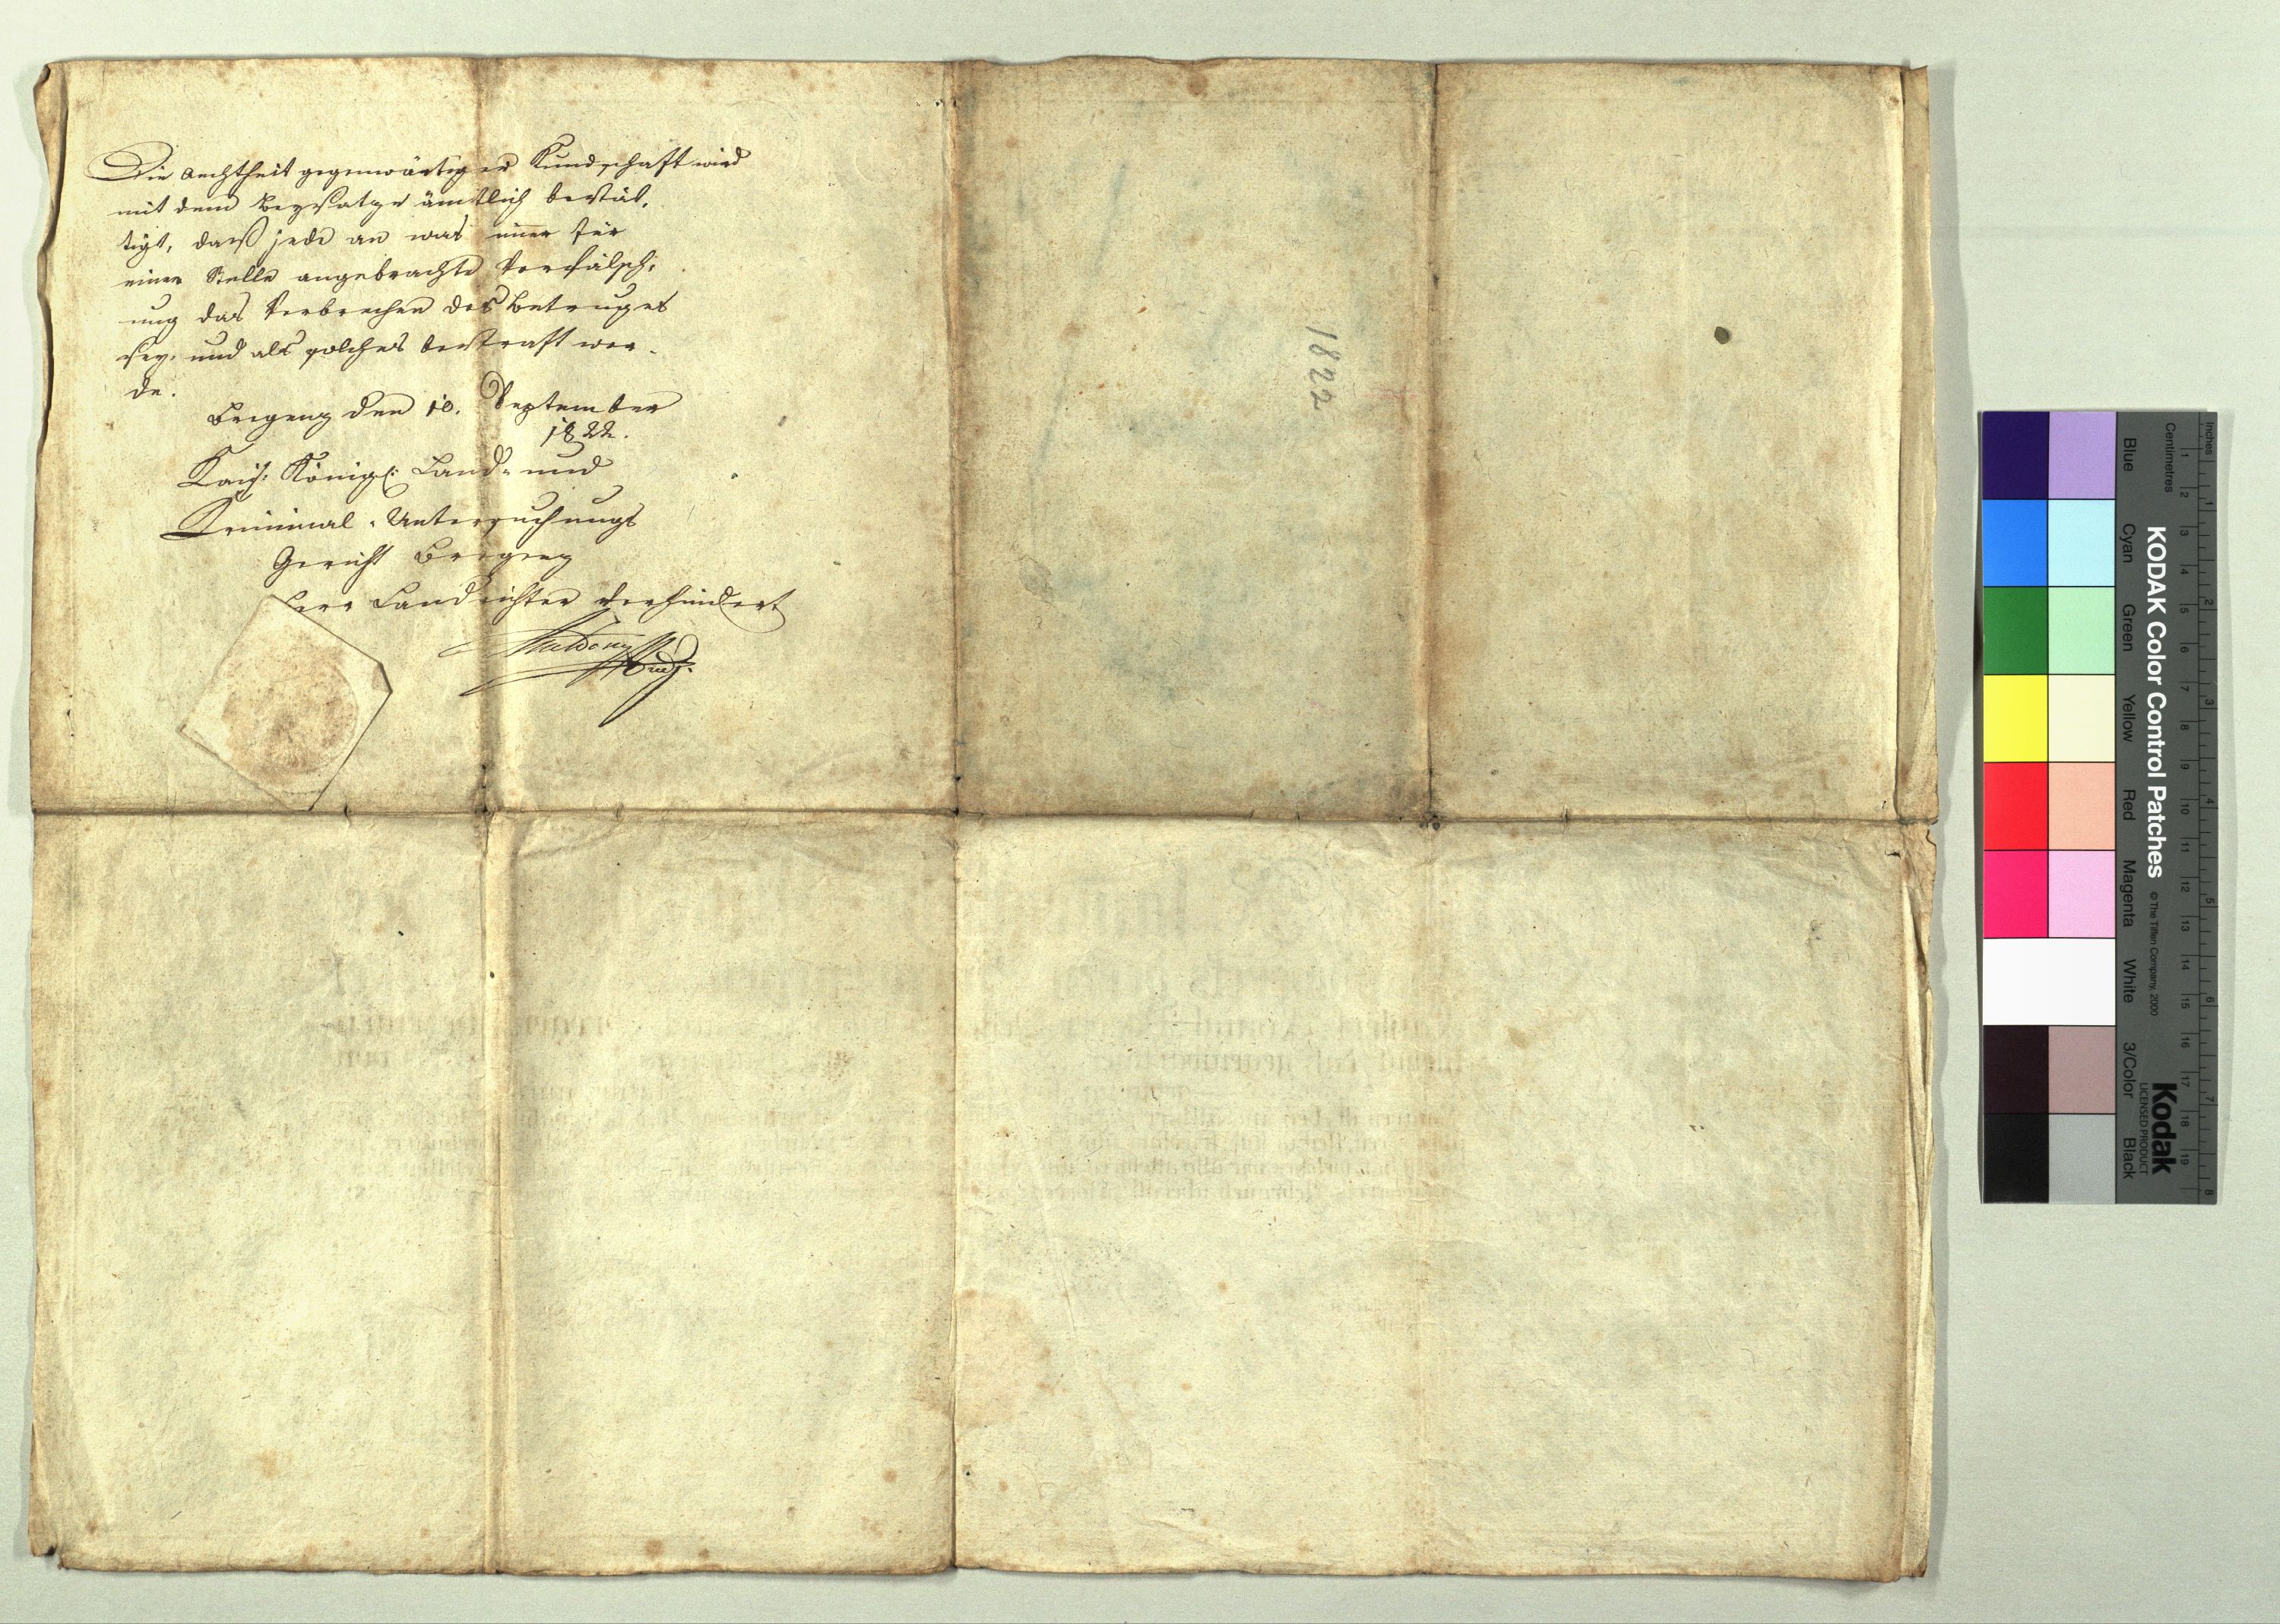 Die Aechtheit gegenwärtiger Kundschaft wird
mit dem Beysatze ämtlich bestät,
tigt, daß jede an was immer für
einer Stelle angebrachte Verfälsch,
ung das Verbrechen des Betruges
sey, und als solches bestraft wer-
de.
Bregenz den 10. September
1822.
Kais: Königl: Land- und
Kriminal-Untersuchungs
Gericht Bregenz
Herr Landrichter verhindert
1822
Inches
Centimetres
Blue
Cyan
Green
Yellow
Red
Magenta
White
3/Color
Black
KODAK Color Control Patches
© The Tiffen Company, 2000
Kodak
LICENSED PRODUCT
1 2 3 4 5 6 7 8 9 10 11 12 13 14 15 16 17 18 19
1 2 3 4 5 6 7 8